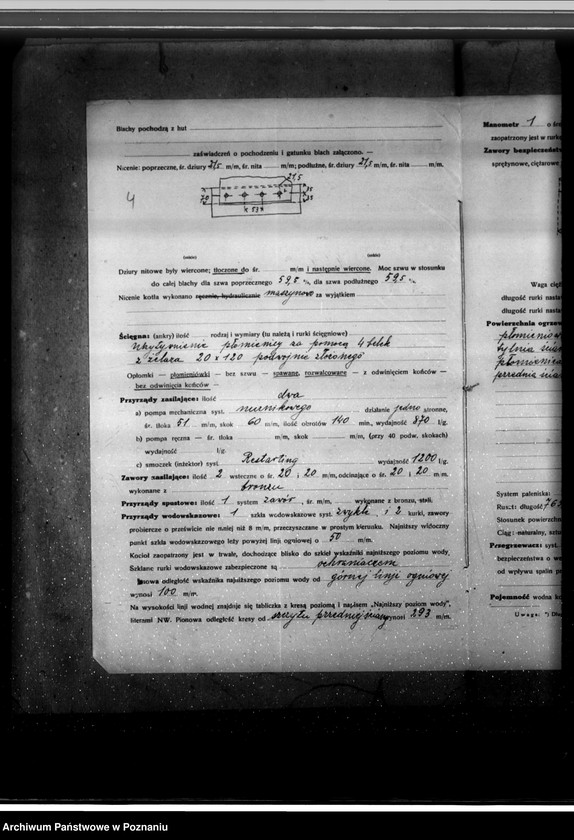 Blachy pochodzą z hut
zaświadczeń o pochodzeniu i gatunku blach załączono. —
Nicenie: poprzeczne, śr. dziury 21,5 m/m, śr. nita m/m; podłużne, śr. dziury 21,5 m/m, śr. nita m/m.
21,5
4
70
35
35
53
Dziury nitowe były wiercone; tłoczone do śr. m/m i następnie wiercone. Moc szwu w stosunku
do całej blachy dla szwa poprzecznego 59,5 %, dla szwa podłużnego 59,5 %.
Nicenie kotła wykonano ręcznie, hydraulicznie maszynowo za wyjątkiem
Ścięgna: (ankry) ilość rodzaj i wymiary (tu należą i rurki ścięgniowe)
płomienicy za pomocą 4 belek
z żelaza 20 x 120 podwójnie złożonego
Opłomki — płomieniówki — bez szwu — spawane, rozwalcowane — z odwinięciem końców —
— bez odwinięcia końców —
Przyrządy zasilające: ilość dwa
a) pompa mechaniczna syst. nurnikowego działanie jedno stronne,
śr. tłoka 51 m/m, skok 60 m/m, ilość obrotów 140 min., wydajność 870 l/g.
b) pompa ręczna — śr. tłoka m/m, skok m/m, (przy 40 podw. skokach)
wydajność l/g.
c) smoczek (inżektor) syst. Restarting wydajność 1200 l/g.
Zawory zasilające: ilość 2 wsteczne o śr. 20 i 20 m/m, odcinające o śr. 20 i 20 m/m.
wykonane z bronzu
Przyrządy spustowe: ilość 1 system zawór, śr. m/m, wykonane z bronzu, stali.
Przyrządy wodowskazowe: 1 szkła wodowskazowe syst. zwykłe i 2 kurki, zawory
probiercze o prześwicie nie mniej niż 8 m/m, przeczyszczane w prostym kierunku. Najniższy widoczny
punkt szkła wodowskazowego leży powyżej linji ogniowej o 50 m/m.
Kocioł zaopatrzony jest w trwałe, dochodzące blisko do szkieł wskaźniki najniższego poziomu wody.
Szklane rurki wodowskazowe zabezpieczone są ochraniaczem
odległość wskaźnika najniższego poziomu wody od górnej linji ogniowej
wynosi 100 m/m.
Na wysokości linji wodnej znajduje się tabliczka z kresą poziomą i napisem „Najniższy poziom wody",
literami NW. Pionowa odległość kresy od szczytu przedniej ściany wynosi 293 m/m.
Manometr 1 o śre
zaopatrzony jest w rurkę
Zawory bezpieczeństwa
sprężynowe, ciężarowe
Waga cięż
długość rurki nasta
długość rurki nasta
Powierzchnia ogrzew
płomieniow
tylnia ścia
płomienica
przednia ścia
System palenisko
Ruszt: długość
Stosunek powierzchn
Ciąg: naturalny, sztu
Przegrzewacz: syst.
bezpieczeństwa o we
od wpływu spalin p
Pojemność wodna ko
Uwaga: *) Dłu
Archiwum Państwowe w Poznaniu